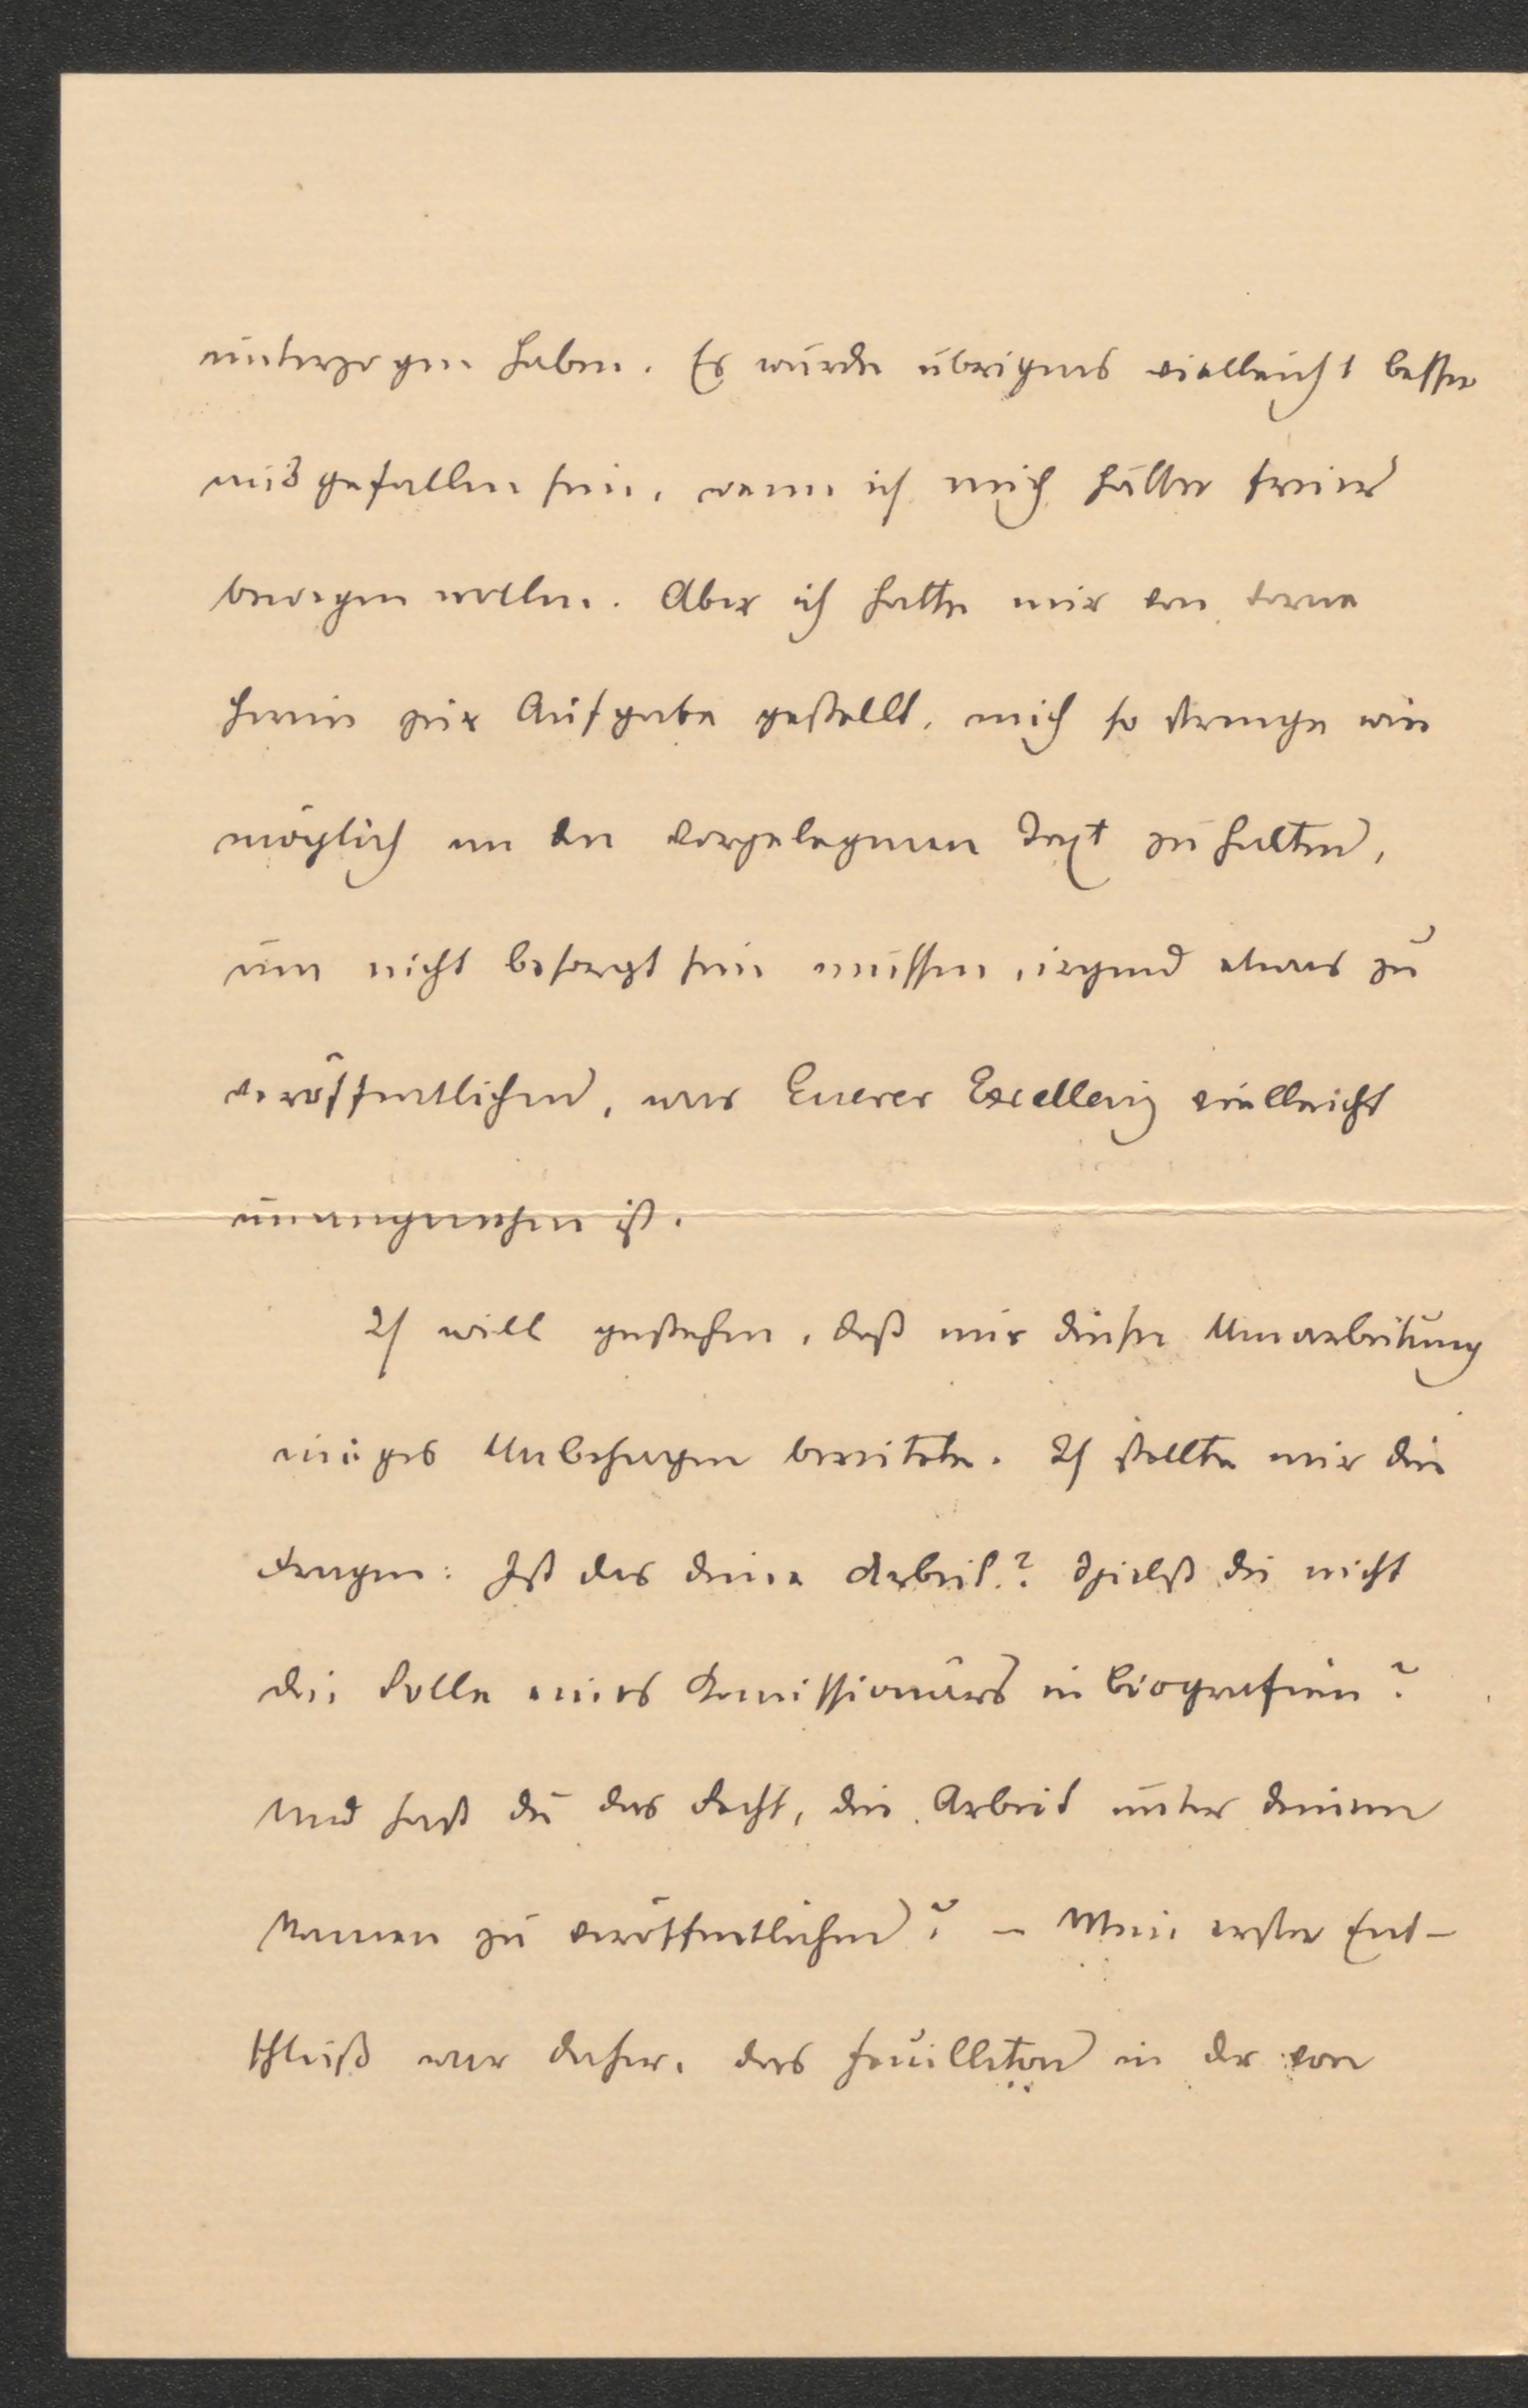 unterzogen haben. Es würde übrigens vielleicht besser
ausgefallen sein, wenn ich mich hätte freier
bewegen wollen. Aber ich hatte mir von vorne
herein zur Aufgabe gestellt, mich so strenge wie
möglich an den vorgelegenen Text zu halten,
um nicht besorgt sein müssen, irgend etwas zu
veröffentlichen, was Euerer Excellenz vielleicht
unangenehm ist.
Ich will gestehen, daß mir diese Umarbeitung
einiges Unbehagen bereitete. Ich stellte mir die
Fragen: Ist das deine Arbeit? Spielst du nicht
die Rolle eines Komissionärs in Biografien?
Und hast du das Recht, die Arbeit unter deinem
Namen zu veröffentlichen? – Mein erster Ent-
schluß war daher, das Feuilleton in der von